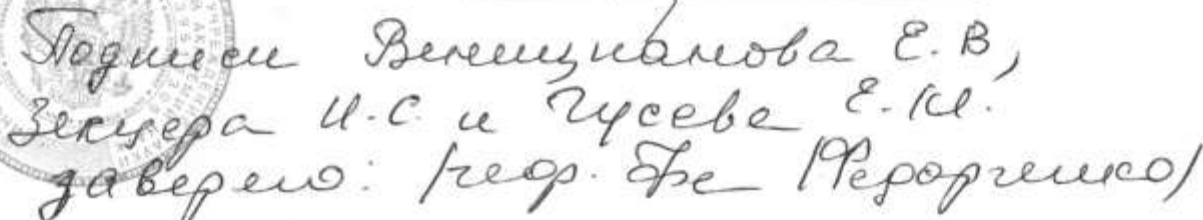 Подписи Веницианова Е.В,
Зекцера И.С. и Гусева Е.М.
заверено: (Федорченко)